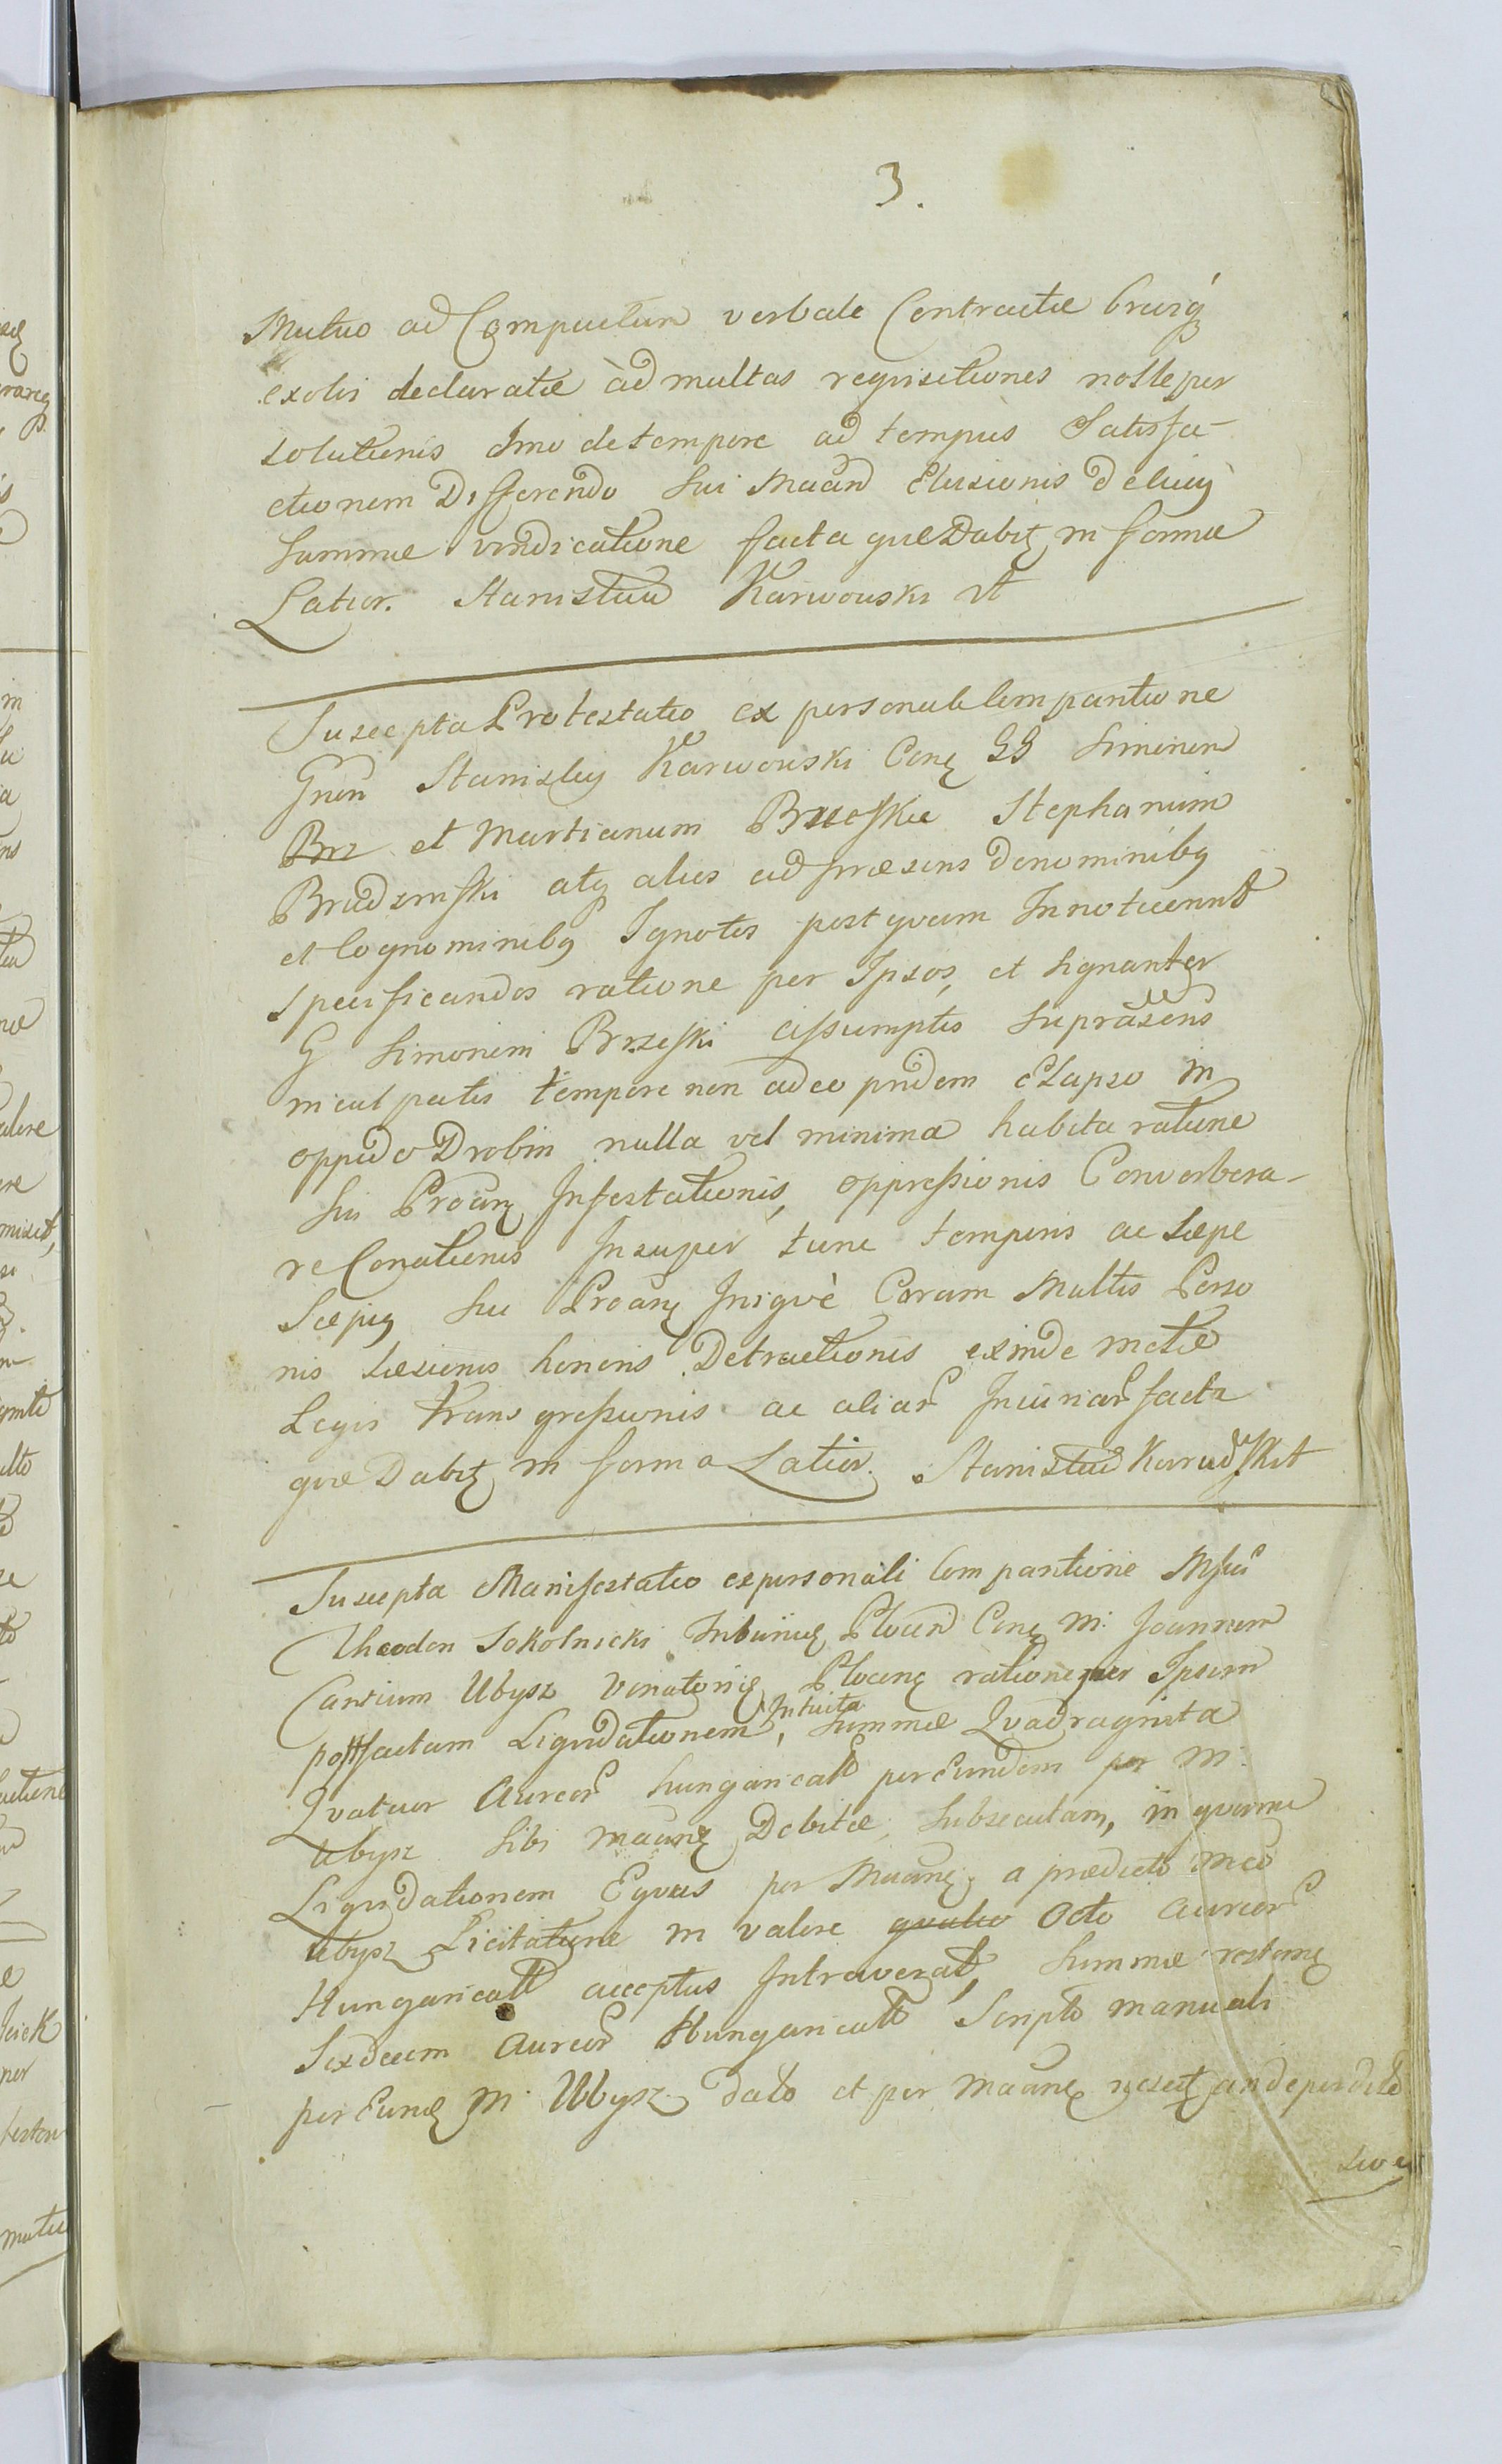 3.
Mutuo ad Compactum verbale Contractæ
exolvi declaratæ ad multas requisitiones nolle per
solutionis Imo de tempore ad tempus Satisfa-
ctionem Differendo sui Maãnd Elusionis
summæ vindicatione facta quæ Dabit in forma
Latior. Stanisław Karwowski
Suscepta Protestatio ex personali Compartione
Gnõn Stanislai Karwowski Conẽ GG Simonem
Brz et Martianum Brzeski Stephanum
Brudzinski atq alios ad præsens de nominibq
et Cognominibq Ignotos post quam Innotuerint
specificandos ratione per Ipsos, et signanter
G Simonem Brzeski assumptis
inculpatis tempore non adeo pridem elapso in
oppido Drobin nulla vel minima habita ratione
sui Proãnẽ Infestationis, oppressionis Converbera-
re Conationis Insuper tunc temporis ac sæpe
Sæpiq sui Proãnẽ Iniquè Coram Multis Perso
nis Læsionis honoris Detractionis exinde
Legis transgressionis ac aliar Iniuriar facta
quæ Dabit in forma Latior. Stanisław
Suscepta Manifestatio ex personali Compartione
Theodori Sokolnicki Tribuni Plocen Conẽ M. Joannem
Cantium Ubysz Venatorẽ Plocenẽ ratione per Ipsum
post factam Liquidationem, Intuitu summæ Quadraginta
Quatuor Aureor hungaricall per Eundem per M.
Ubysz sibi Maãnẽ Debitæ, subsecutam, in quam
Liquidationem Equus per Maãnẽ a prædicto
Ubysz Licitatione in valore quatuo Octo Aureor
Hungaricall acceptus Intraverat, summæ restanẽ
Sexdecim Aureor Hungaricall Scripto manuali
per Eunđ M. Ubysz dato et per Maãnẽ